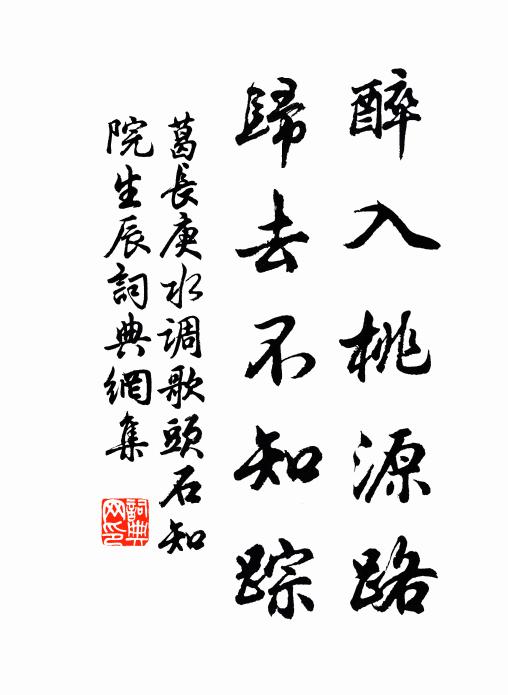 醉入桃源路
歸去不知踪
葛長庚水调歌頭石知
院生辰詞典網集
詞典网印